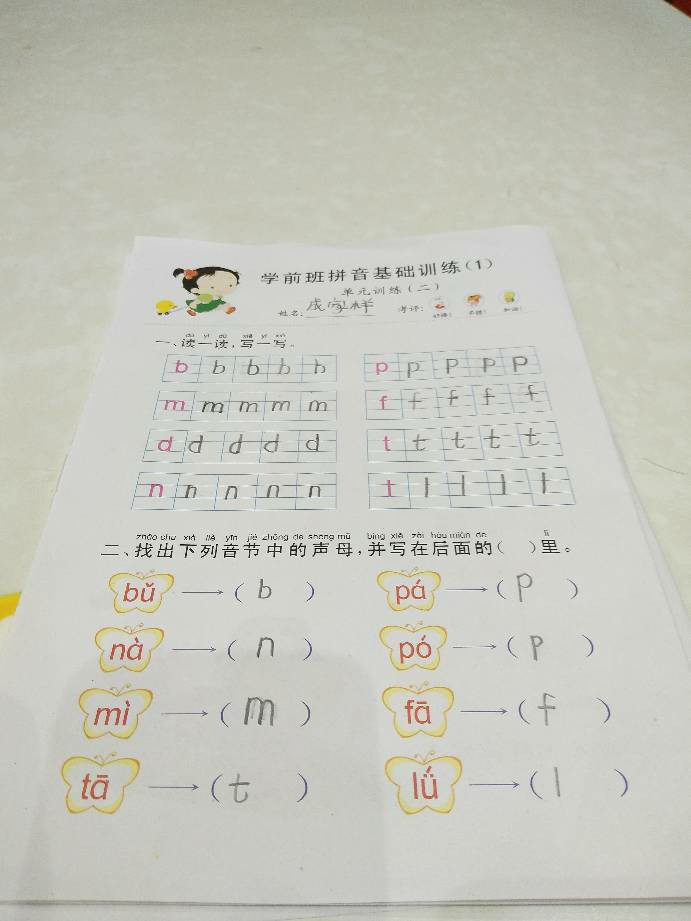 学前班拼音基础训练(1)
单元训练(二)
姓名: 成家样 考评:
dú yì dú xiě yì xiě
一、读一读,写一写。
b b b b b p p p p p
m m m m m f f f f f
d d d d d t t t t t
n n n n n t l l l l
zhǎo chū xià liè yīn jié zhōng de shēng mǔ bìng xiě zài hòu miàn de lǐ
二、找出下列音节中的声母,并写在后面的( )里。
bǔ → ( b ) pá → ( p )
nà → ( n ) pó → ( p )
mì → ( m ) fā → ( f )
tā → ( t ) lǘ → ( l )